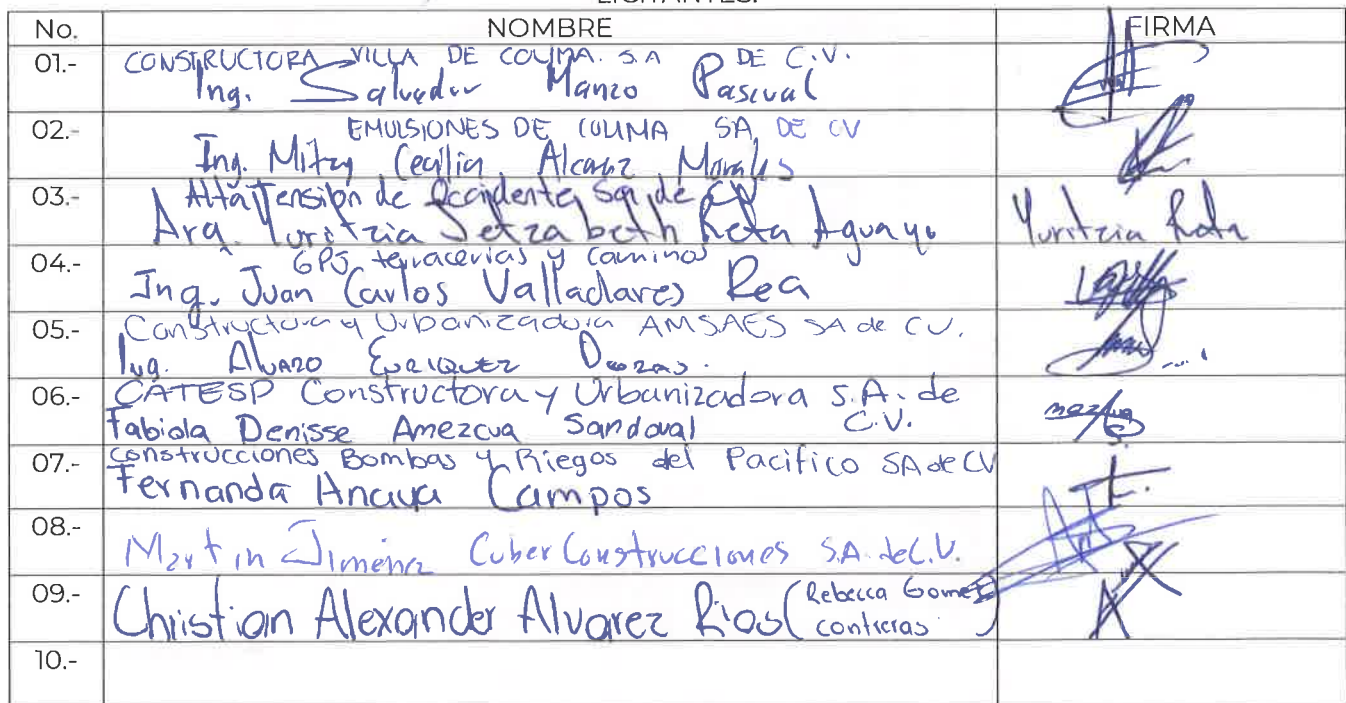 LICITANTES.
No. NOMBRE FIRMA
01.- CONSTRUCTORA VILLA DE COLIMA. S.A DE C.V.
Ing. Salvador Manzo Pascual
02.- EMULSIONES DE COLIMA SA DE CV
Ing. Mitzy Cecilia Alcaraz Morales
03.- Alta Tension de Occidente Sa de CV
Arq. Yuritzia Jetzabeth Reta Aguayo Yuritzia Reta
04.- GPJ terracerias y caminos
Ing. Juan Carlos Valladares Rea
05.- Constructora y Urbanizadora AMSAES SA de CV.
Ing. Alvaro
06.- CATESP Constructora y Urbanizadora S.A. de
C.V.
Fabiola Denisse Amezcua Sandoval
07.- Construcciones Bombas y Riegos del Pacifico SA de CV
Fernanda Anaya Campos
08.-
Martin Jimenez Cuber Construcciones S.A. de C.V.
09.- Christian Alexander Alvarez Rios (Rebecca Gomez
contreras)
10.-